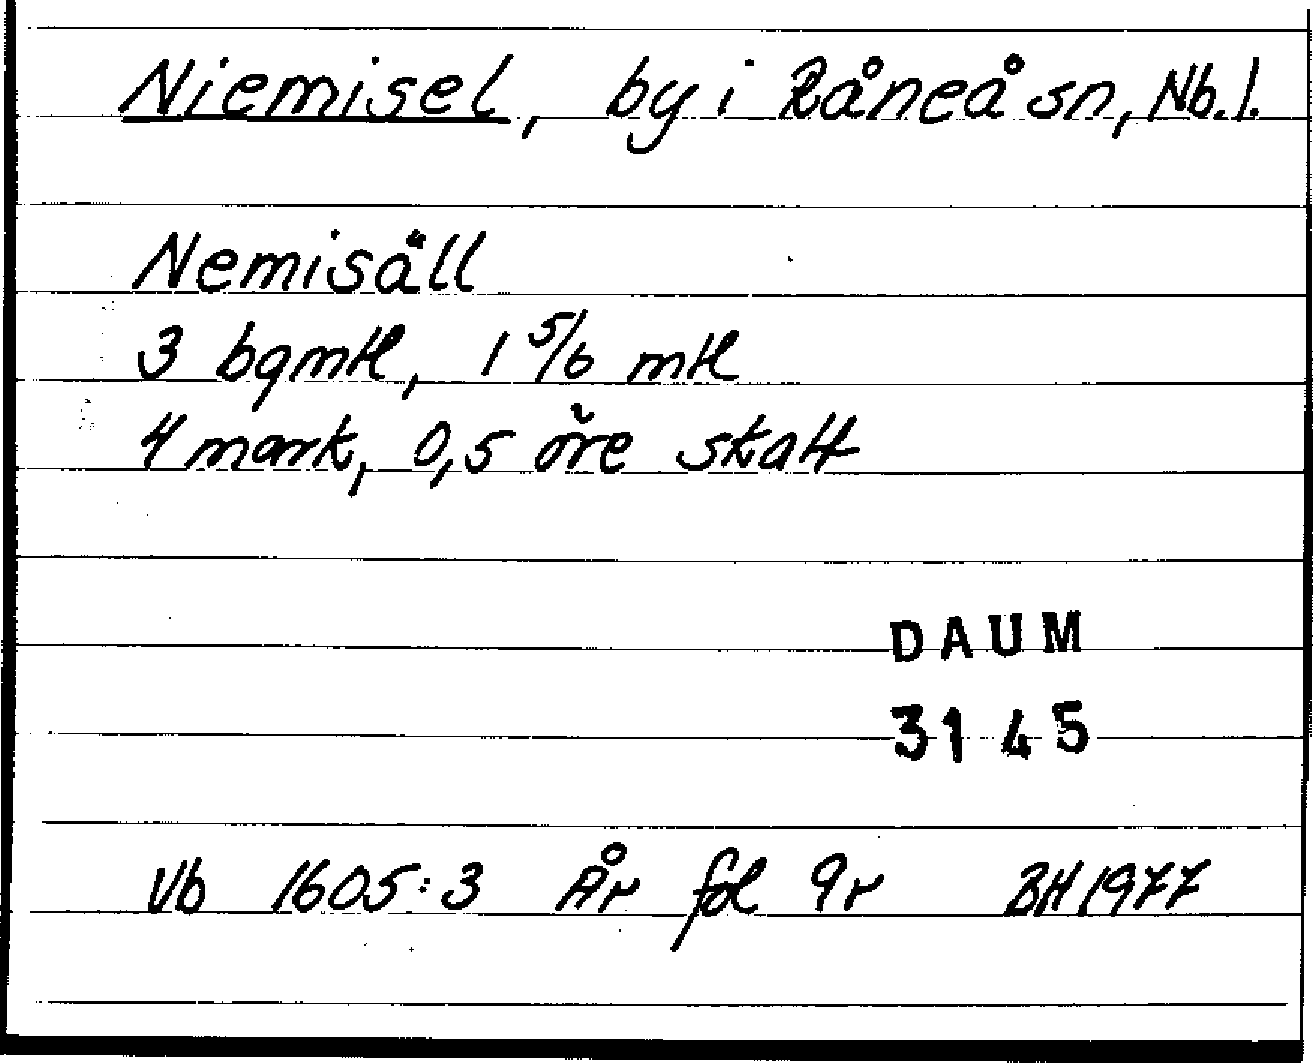 Niemisel, by i Råneå sn, Nb. l.
Nemisäll
3 bgmtl, 1 5/6 mtl
4 mark, 0,5 öre skatt
DAUM
3145
Vb 1605:3 År fol 9r BH 1977